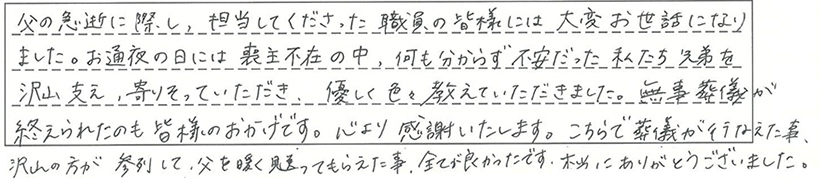 父の急逝に際し、担当してくださった職員の皆様には大変お世話になり
ました。お通夜の日には喪主不在の中、何も分からず不安だった私たち兄弟を
沢山支え、寄りそっていただき、優しく色々教えていただきました。無事葬儀が
終えられたのも皆様のおかげです。心より感謝いたします。こちらで葬儀が行なえた事、
沢山の方が参列して、父を暖く見送ってもらえた事、全てが良かったです。本当にありがとうございました。